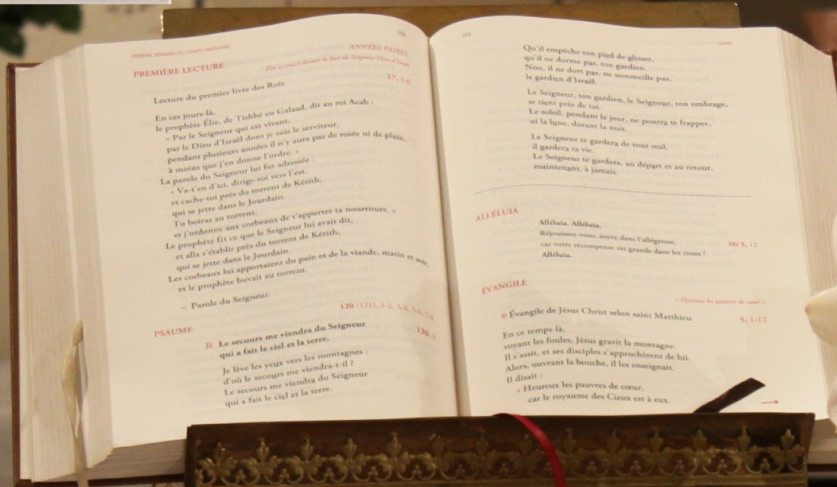 DIXIÈME SEMAINE DU TEMPS ORDINAIRE
ANNÉES PAIRES
PREMIÈRE LECTURE
17, 1-6
Lecture du premier livre des Rois
En ces jours-là,
le prophète Élie, de Tishbé en Galaad, dit au roi Acab :
« Par le Seigneur qui est vivant,
par le Dieu d'Israël dont je suis le serviteur,
pendant plusieurs années il n'y aura pas de rosée ni de pluie,
à moins que j'en donne l'ordre. »
La parole du Seigneur lui fut adressée :
« Va-t'en d'ici, dirige-toi vers l'est,
et cache-toi près du torrent de Kérith,
qui se jette dans le Jourdain.
Tu boiras au torrent,
et j'ordonne aux corbeaux de t'apporter ta nourriture. »
Le prophète fit ce que le Seigneur lui avait dit,
et alla s'établir près du torrent de Kérith,
qui se jette dans le Jourdain.
Les corbeaux lui apportaient du pain et de la viande, matin et soir,
et le prophète buvait au torrent.
– Parole du Seigneur.
PSAUME
120 (121), 1-2, 3-4, 5-6, 7-8
℟ Le secours me viendra du Seigneur
qui a fait le ciel et la terre.
120, 2
Je lève les yeux vers les montagnes :
d'où le secours me viendra-t-il ?
Le secours me viendra du Seigneur
qui a fait le ciel et la terre.
Qu'il empêche ton pied de glisser,
qu'il ne dorme pas, ton gardien.
Non, il ne dort pas, ne sommeille pas,
le gardien d'Israël.
Le Seigneur, ton gardien, le Seigneur, ton ombrage,
se tient près de toi.
Le soleil, pendant le jour, ne pourra te frapper,
ni la lune, durant la nuit.
Le Seigneur te gardera de tout mal,
il gardera ta vie.
Le Seigneur te gardera, au départ et au retour,
maintenant, à jamais.
ALLÉLUIA
Alléluia. Alléluia.
Réjouissez-vous, soyez dans l'allégresse,
car votre récompense est grande dans les cieux !
Mt 5, 12
Alléluia.
ÉVANGILE
« Heureux les pauvres de cœur »
Évangile de Jésus Christ selon saint Matthieu
5, 1-12
En ce temps-là,
voyant les foules, Jésus gravit la montagne.
Il s'assit, et ses disciples s'approchèrent de lui.
Alors, ouvrant la bouche, il les enseignait.
Il disait :
« Heureux les pauvres de cœur,
car le royaume des Cieux est à eux.